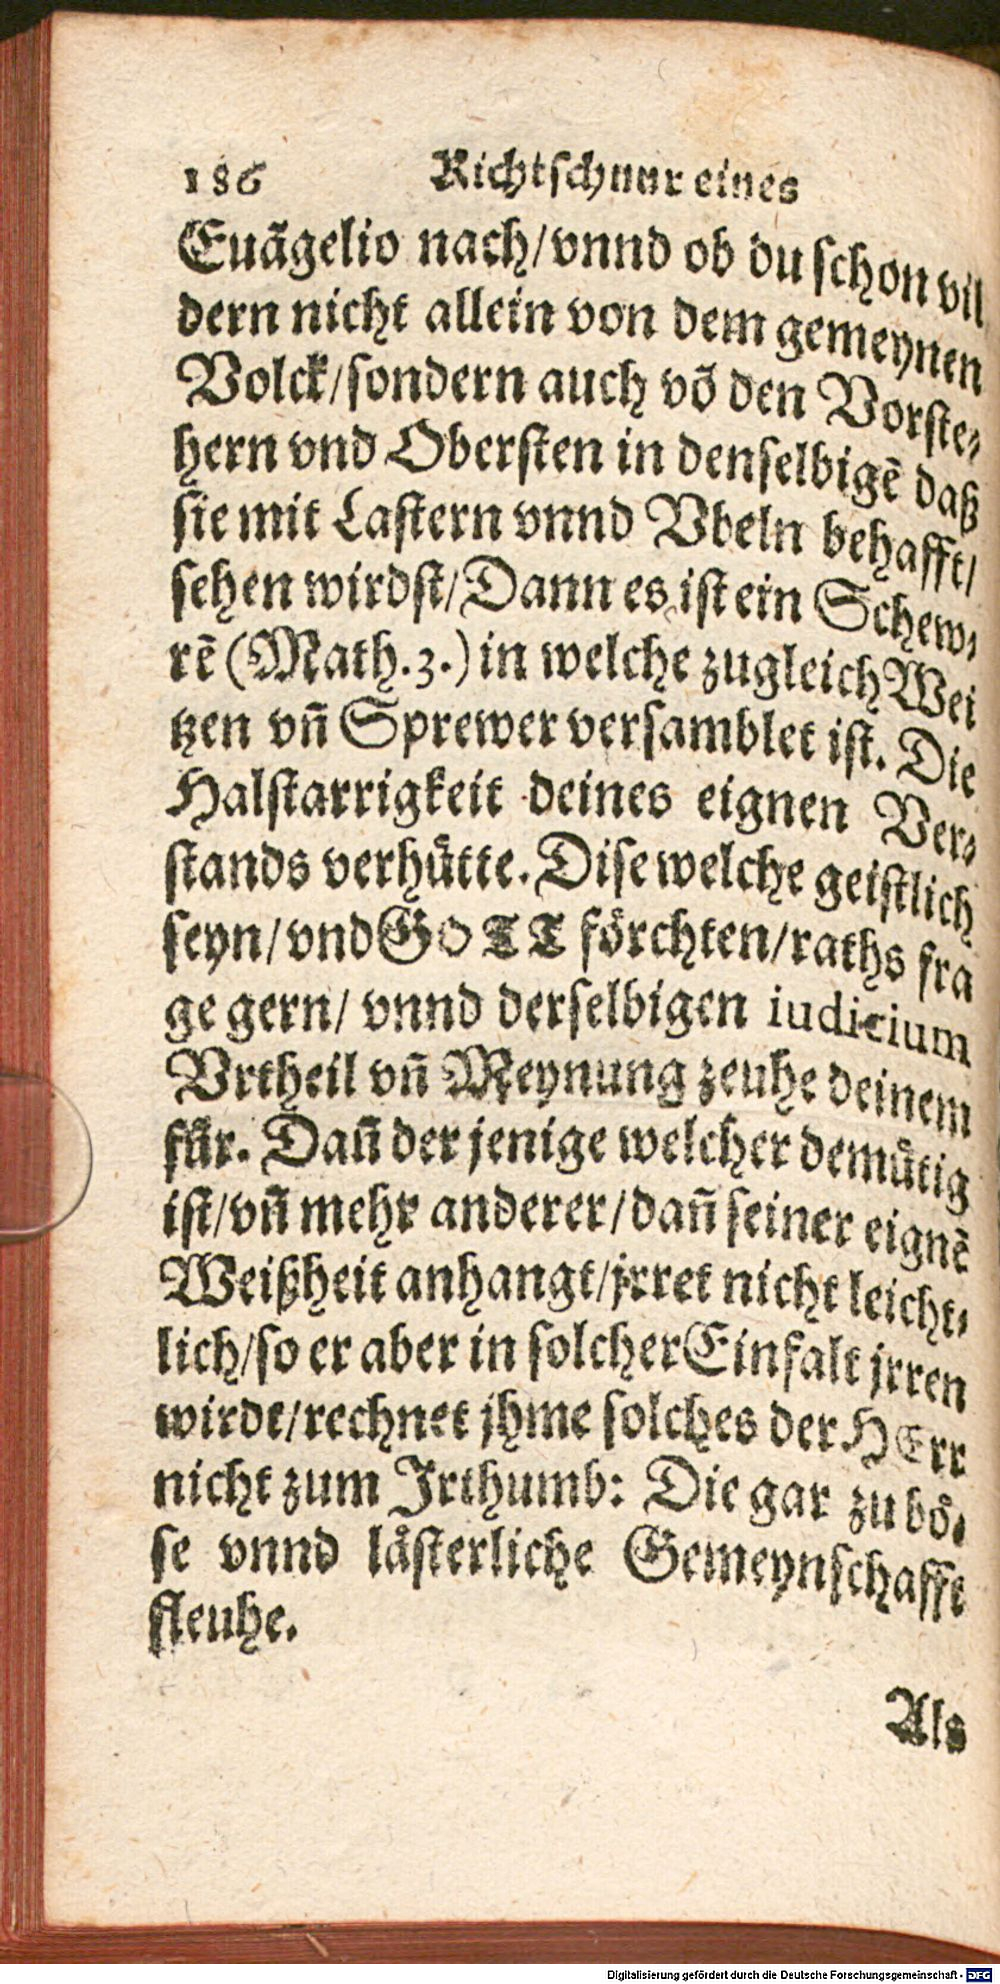 186 Richtschnur eines
Euãgelio nach/vnnd ob du schon vil
dern nicht allein von dem gemeynen
Volck/sondern auch võ den Vorste⸗
hern vnd Obersten in denselbigẽ daß
sie mit Lastern vnnd Vbeln behafft/
sehen wirdst/Dann es ist ein Schew⸗
rẽ (Math.3.) in welche zugleich Wei
tzen vñ Sprewer versamblet ist. Die
Halstarrigkeit deines eignen Ver⸗
stands verhuͤtte. Dise welche geistlich
seyn/vnd GOTT foͤrchten/raths fra
ge gern/ vnnd derselbigen iudicium
Vrtheil vñ Meynung zeuhe deinem
fuͤr. Dañ der jenige welcher demuͤtig
ist/vñ mehr anderer/dañ seiner eignẽ
Weißheit anhangt/jrret nicht leicht⸗
lich/so er aber in solcher Einfalt jrren
wirdt/rechnet jhme solches der HErr
nicht zum Irthumb: Die gar zu boͤ⸗
se vnnd laͤsterliche Gemeynschafft
fleuhe.
Als
Digitalisierung gefördert durch die Deutsche Forschungsgemeinschaft - DFG